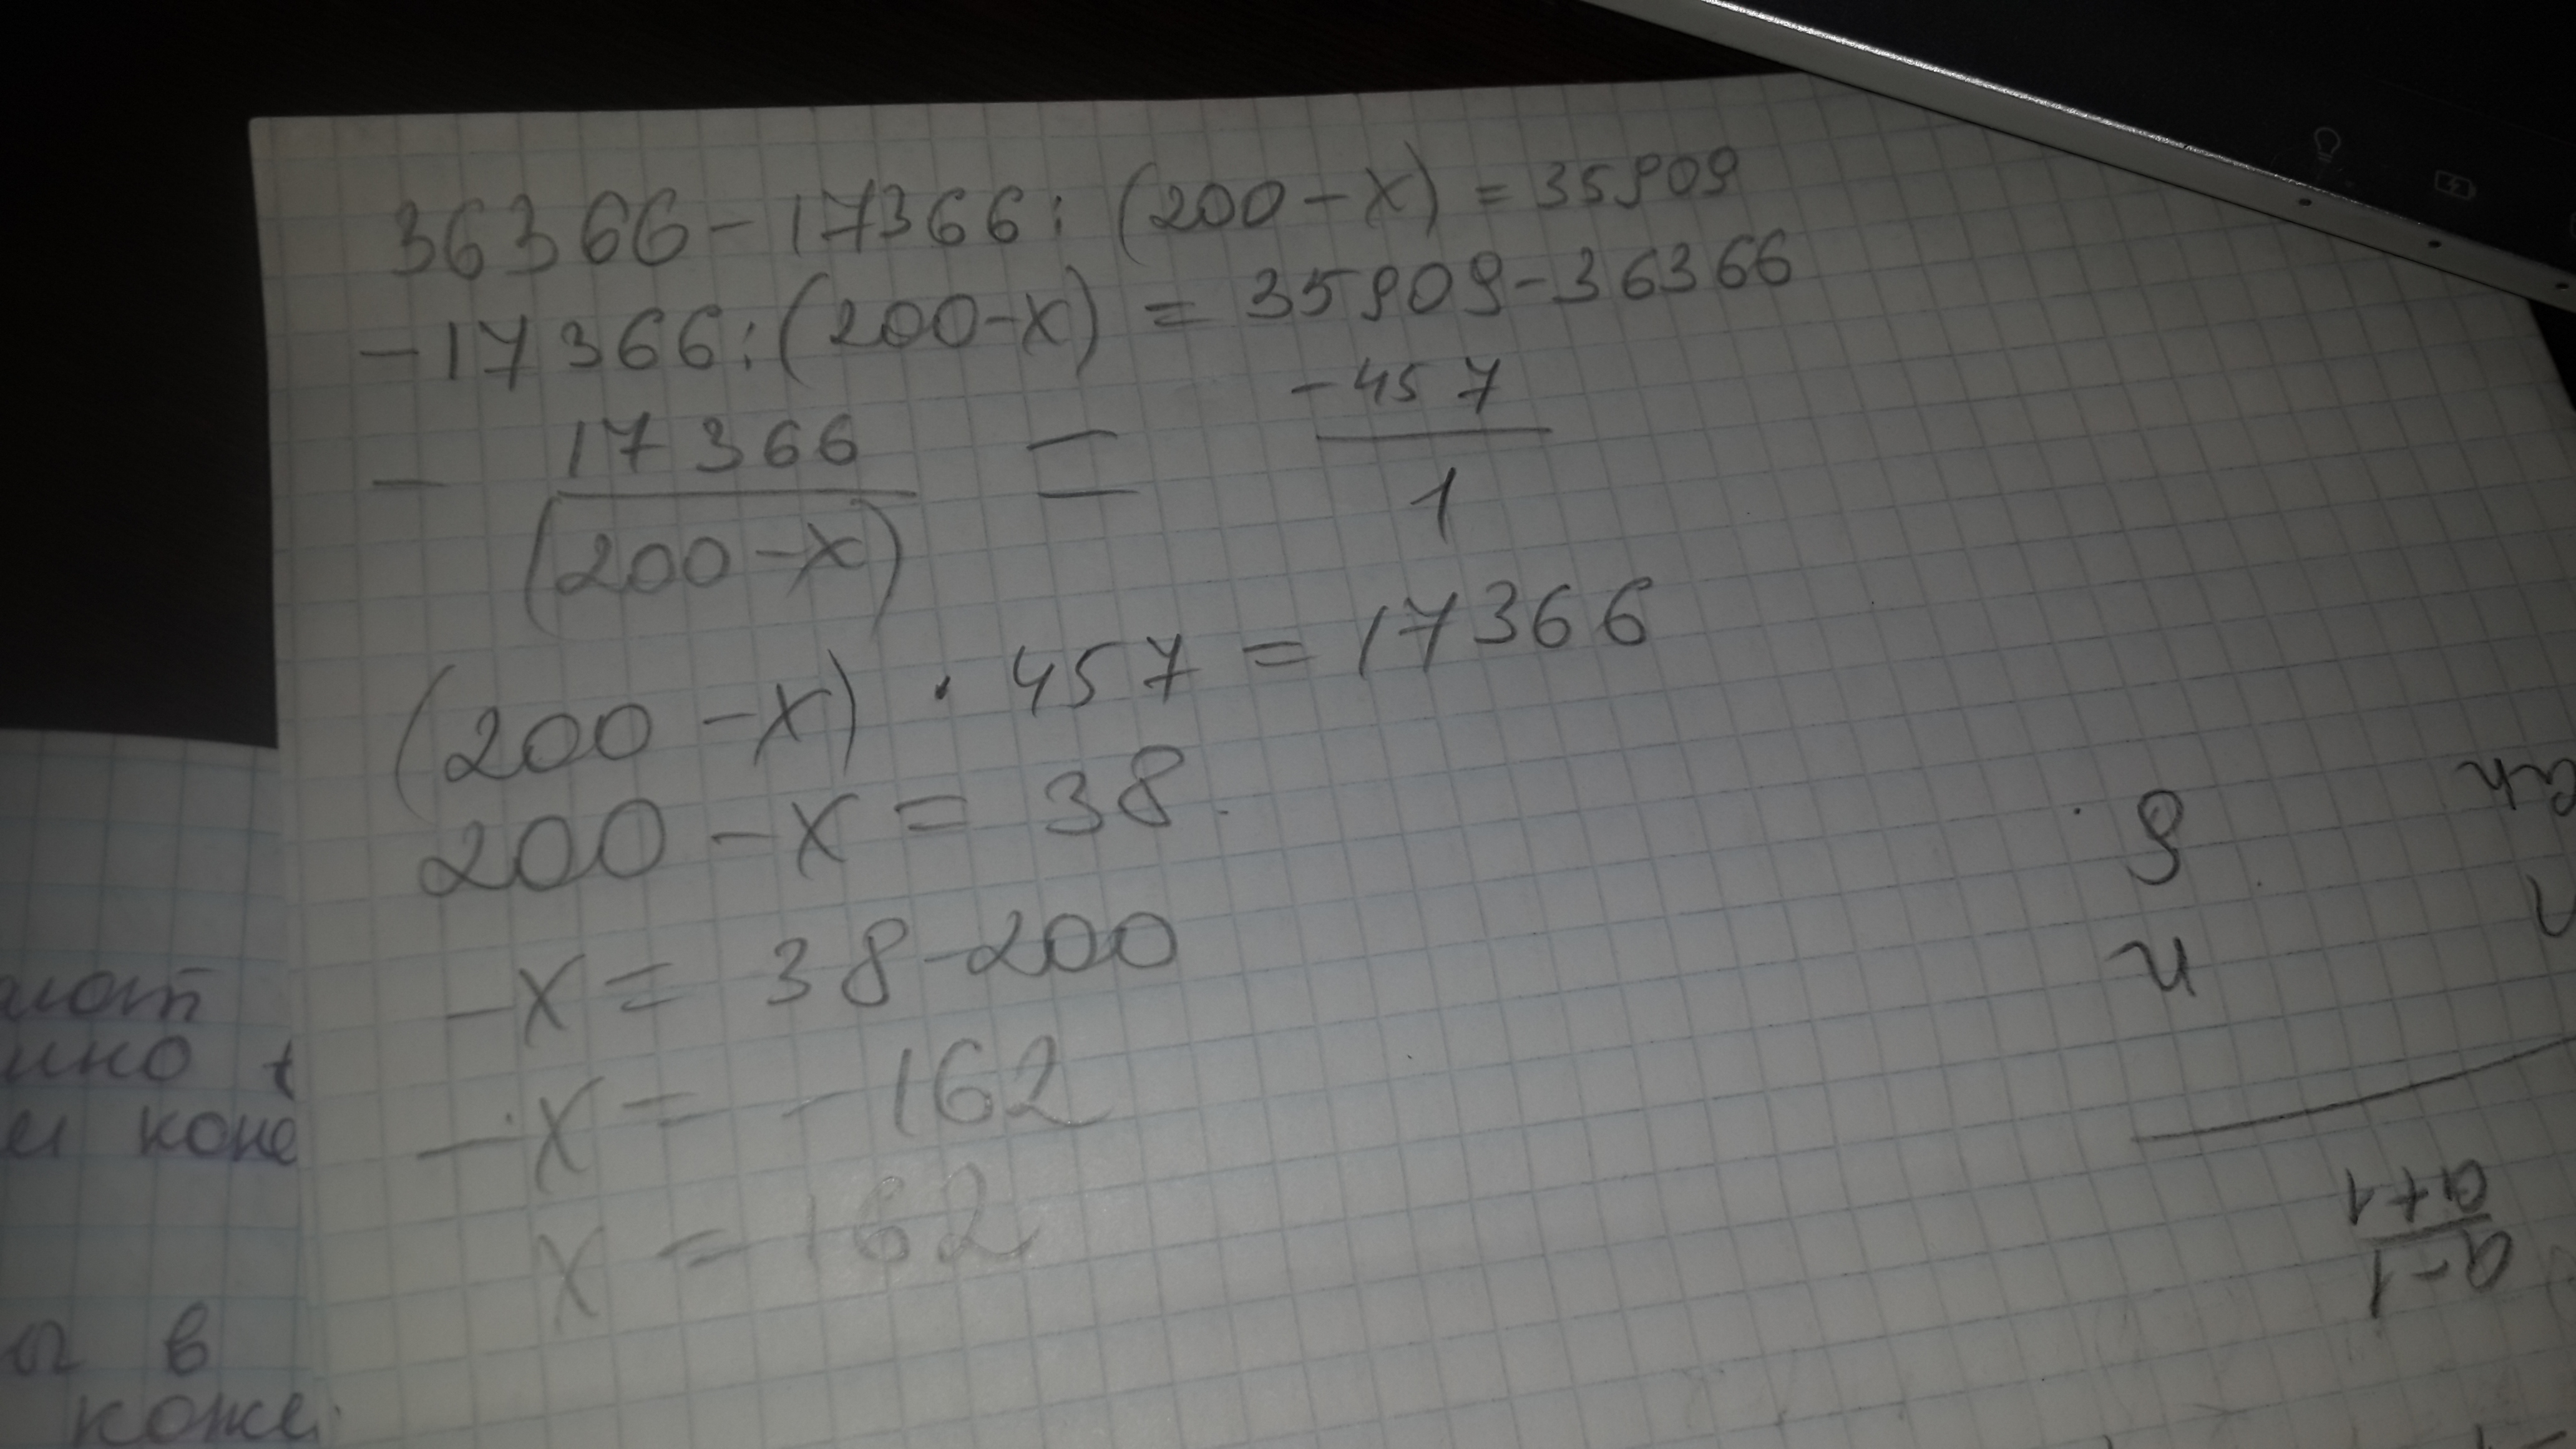 36366-17366:(200-x)=35909
-17366:(200-x)=35909-36366
- 17366/(200-x) = -457/1
(200-x)·457=17366
200-x=38.
-x=38-200
-x=-162
x=162
9
и
a-1/a+1
коне
в
коже